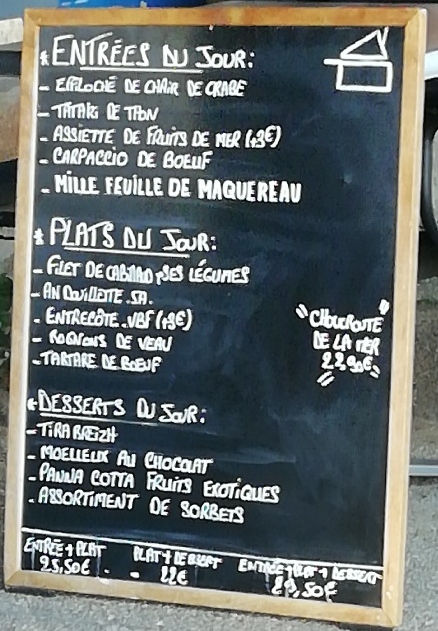 * ENTRÉES DU JOUR:
- EFFILOCHÉ DE CHAIR DE CRABE
- TATAKI DE THON
- ASSIETTE DE FRUITS DE MER (+3€)
- CARPACCIO DE BOEUF
- MILLE FEUILLE DE MAQUEREAU
* PLATS DU JOUR:
- FILET DE CABILLAUD, SES LÉGUMES
- ANDOUILLETTE 5A.
- ENTRECÔTE .VBF (+3€)
- ROGNONS DE VEAU
- TARTARE DE BOEUF
"CHOUCROUTE"
DE LA MER
22,90€
* DESSERTS DU JOUR:
- TIRA BREIZH
- MOELLEUX AU CHOCOLAT
- PANNA COTTA FRUITS EXOTIQUES
- ASSORTIMENT DE SORBETS
ENTRÉE + PLAT
25,50€
PLAT + DESSERT
22€
ENTRÉE + PLAT + DESSERT
29,50€